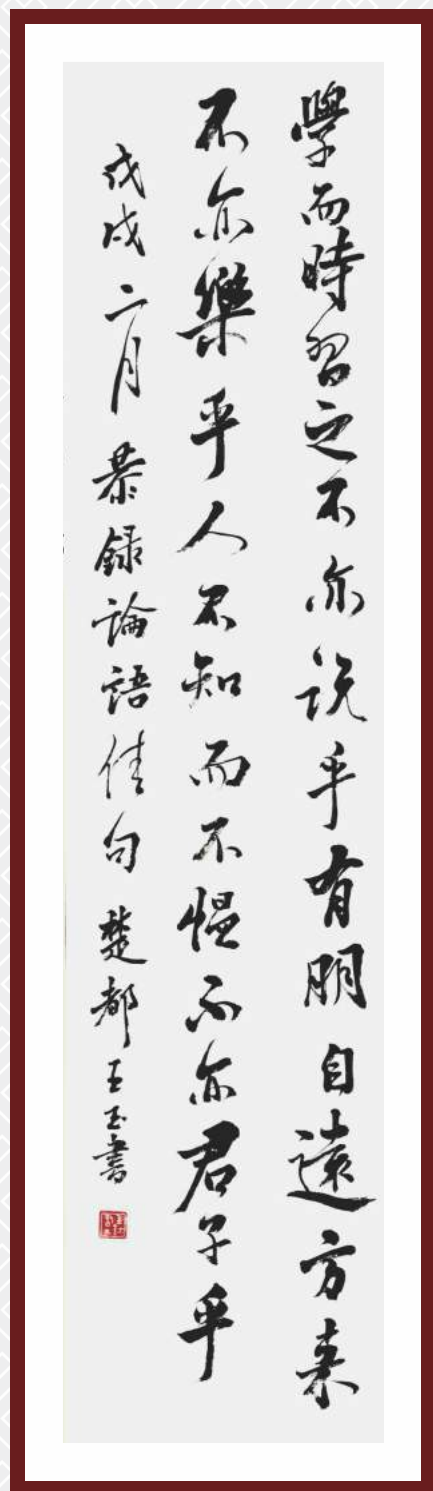 學而時習之不亦说乎有朋自遠方来
不亦樂乎人不知而不愠不亦君子乎
戊戌二月恭録論語佳句楚都王玉書